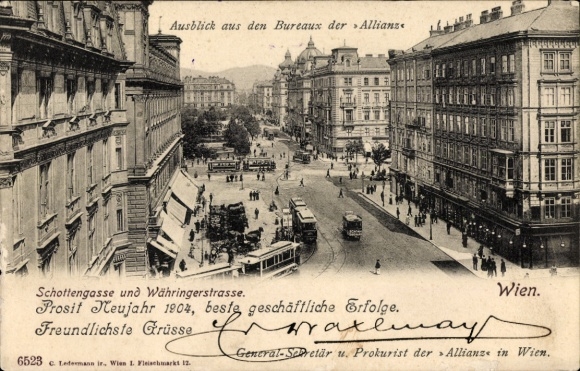 Ausblick aus den Bureaux der »Allianz«
Schottengasse und Währingerstrasse.
Wien.
Prosit Neujahr 1904, beste geschäftliche Erfolge.
Freundlichste Grüsse
General-Sekretär u. Prokurist der »Allianz« in Wien.
6523 C. Ledermann jr., Wien I. Fleischmarkt 12.